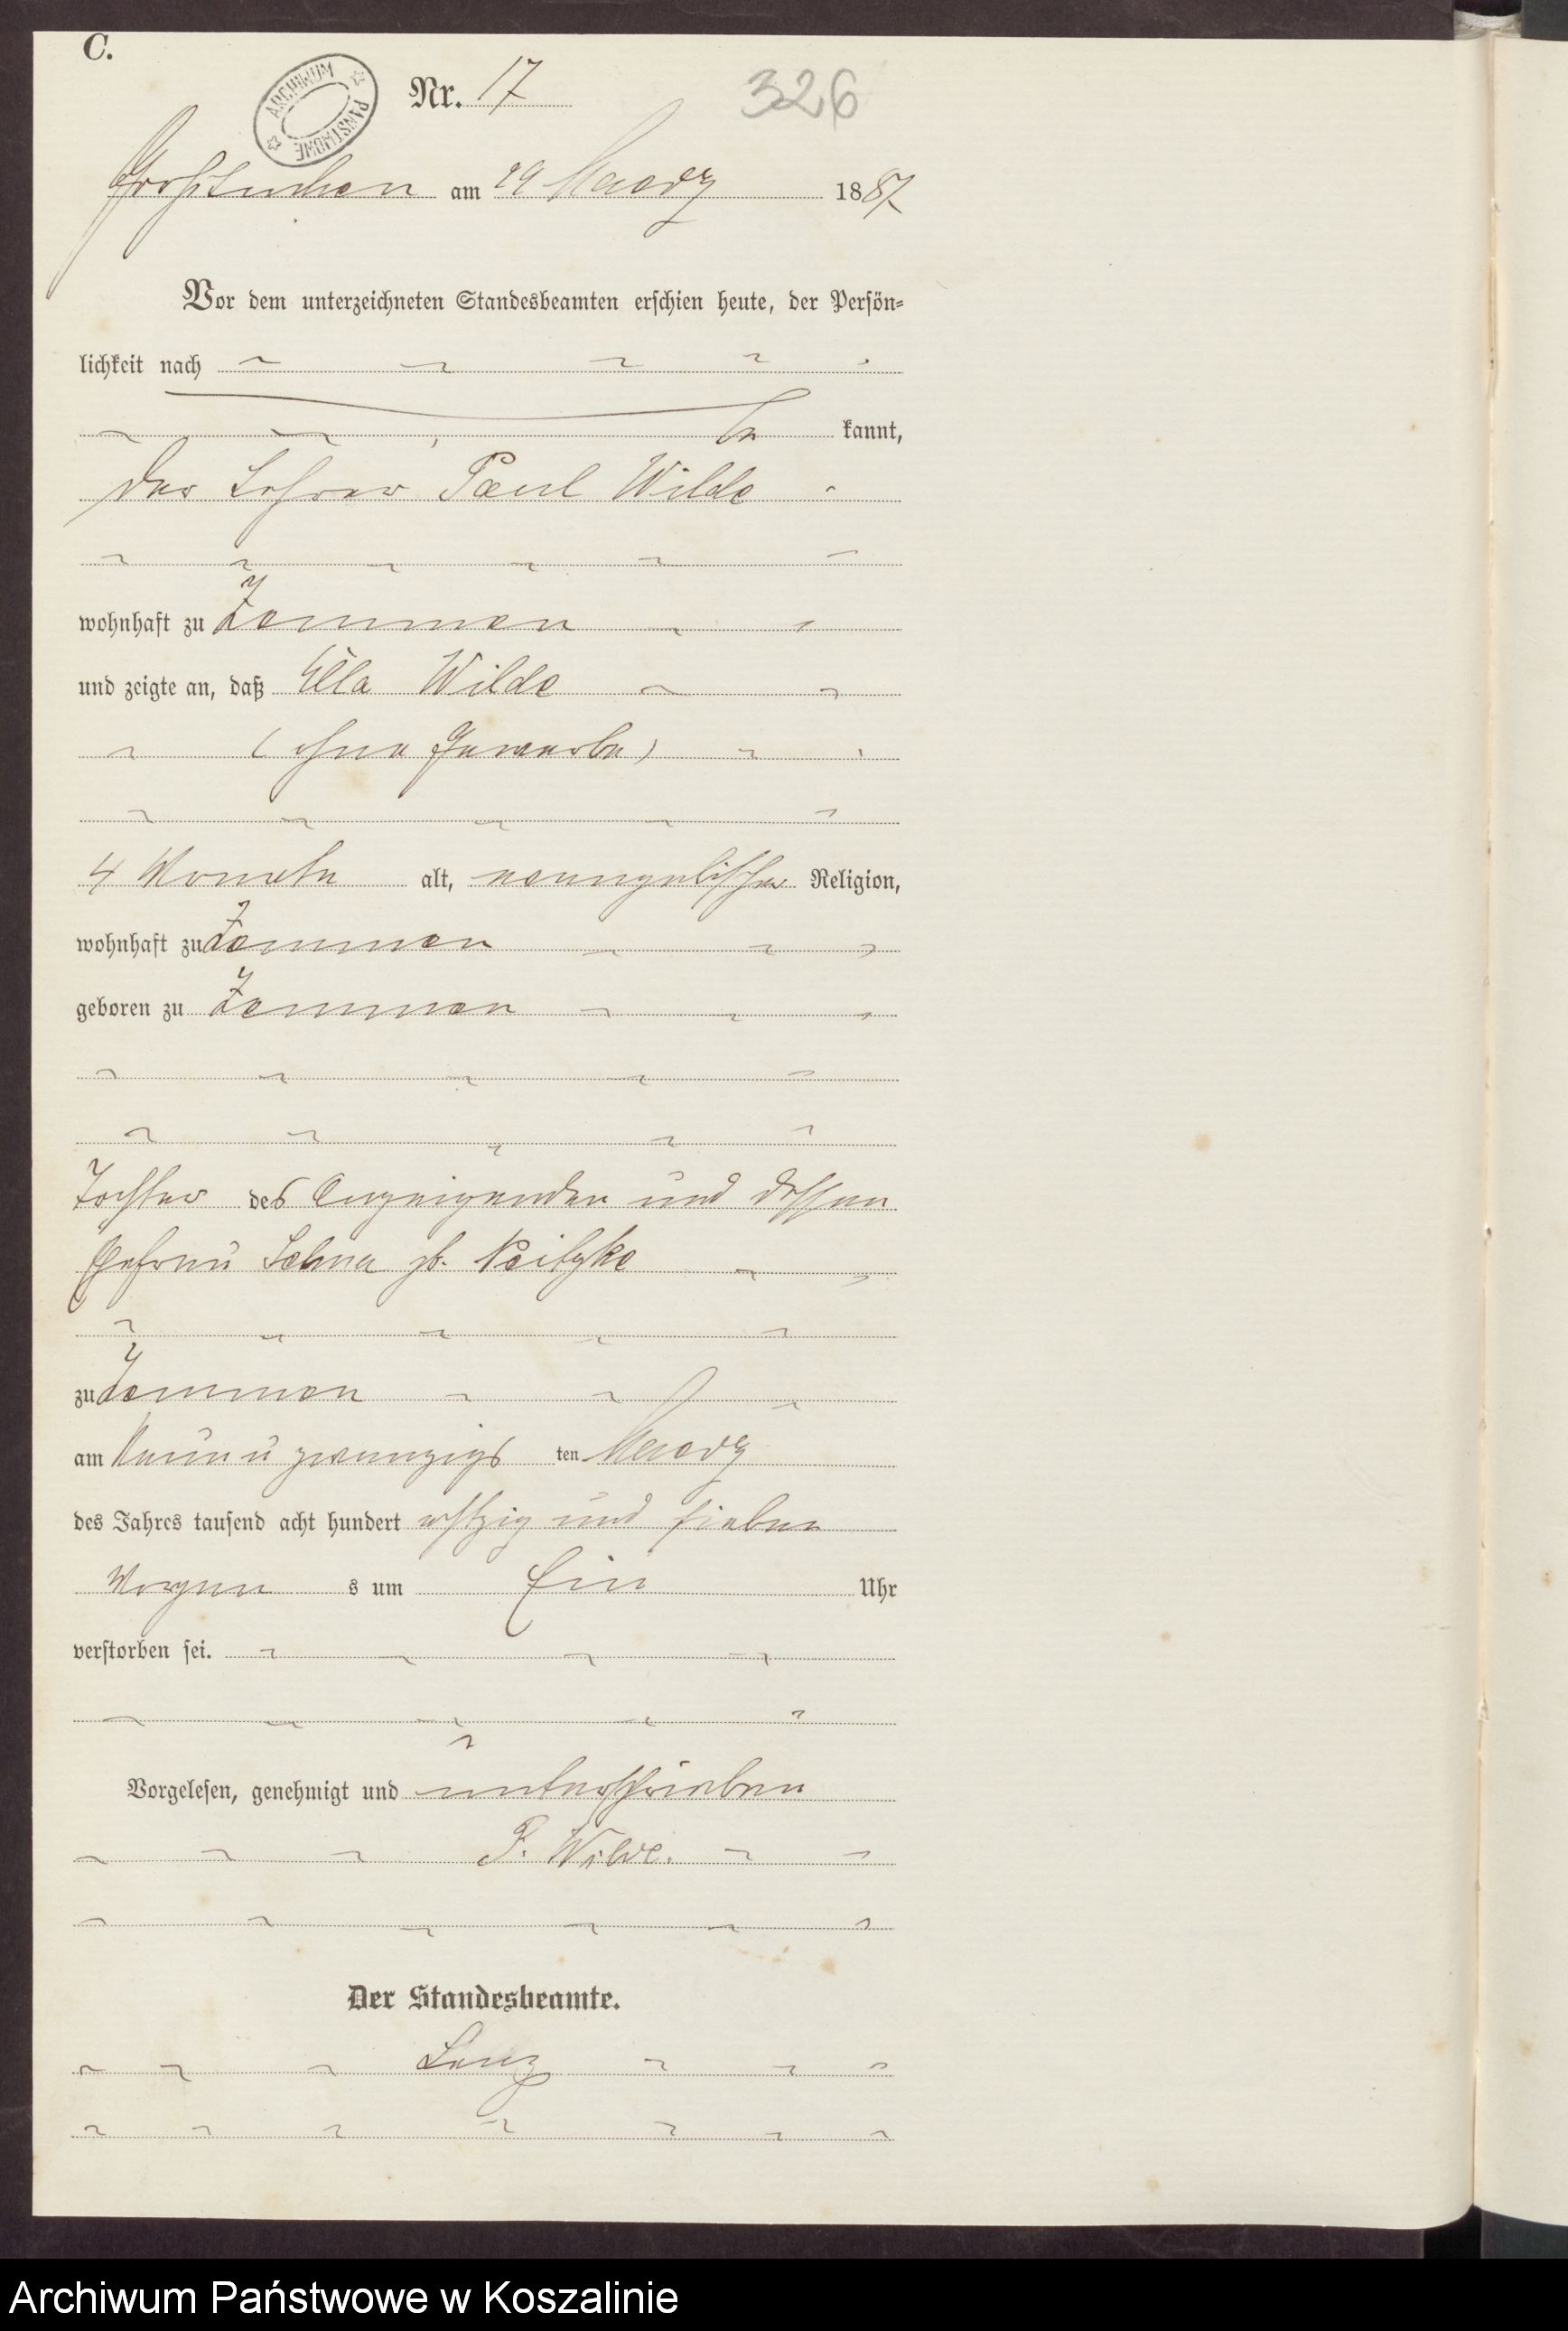 C.
ARCHIWUM PAŃSTWOWE
Nr. 17
326
Großtuchen am 29 Maerz 1887
Vor dem unterzeichneten Standesbeamten erschien heute, der Persön-
lichkeit nach
be kannt,
der Lehrer Paul Wilde
wohnhaft zu Zemmen
und zeigte an, daß Ella Wilde
(ohne Gewerbe)
4 Monate alt, evangelischer Religion,
wohnhaft zu Zemmen
geboren zu Zemmen
Tochter des Anzeigenden und dessen
Ehefrau Selma gb.
zu Zemmen
am Neun u zwanzigs ten Maerz
des Jahres tausend acht hundert achtzig und sieben
Morgen s um Ein Uhr
verstorben sei.
Vorgelesen, genehmigt und unterschrieben
P. Wilde.
Der Standesbeamte.
Lenz
Archiwum Państwowe w Koszalinie